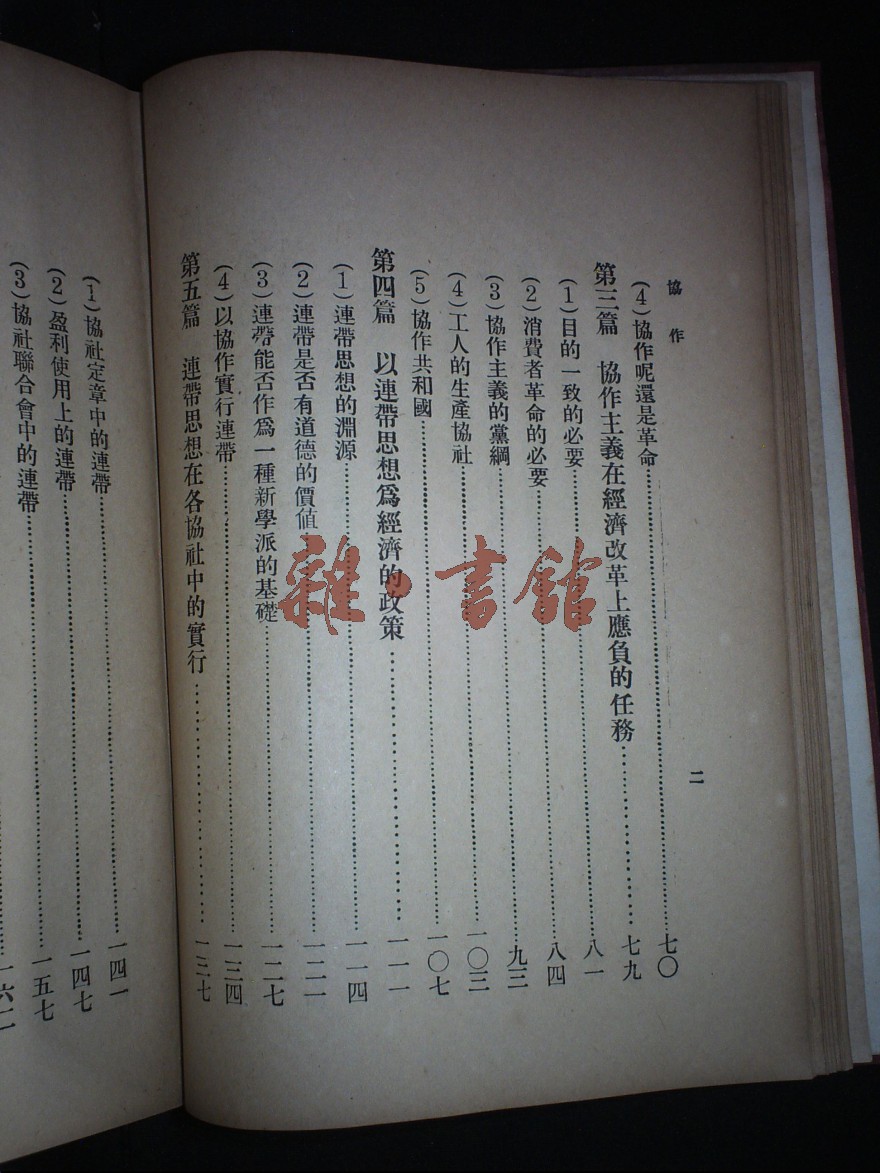 協作
二
(4)協作呢還是革命……七〇
第三篇 協作主義在經濟改革上應負的任務……七九
(1)目的一致的必要……八一
(2)消費者革命的必要……八四
(3)協作主義的黨綱……九三
(4)工人的生產協社……一〇三
(5)協作共和國……一〇七
第四篇 以連帶思想爲經濟的政策……一一一
(1)連帶思想的淵源……一一四
(2)連帶是否有道德的價值……一二一
(3)連帶能否作爲一種新學派的基礎……一二七
(4)以協作實行連帶……一三四
第五篇 連帶思想在各協社中的實行……一三七
(1)協社定章中的連帶……一四一
(2)盈利使用上的連帶……一四七
(3)協社聯合會中的連帶……一五七
雜·書館